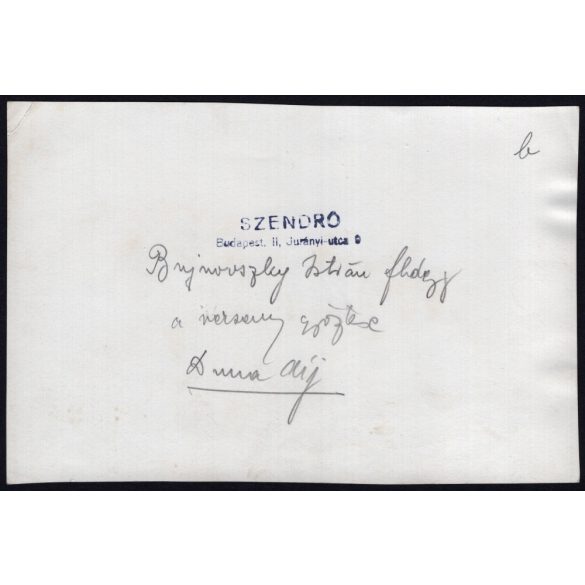 b
SZENDRŐ
Budapest, II, Jurányi-utca 9
Bujnovszky István fhdgy
a verseny győztese
Duna díj